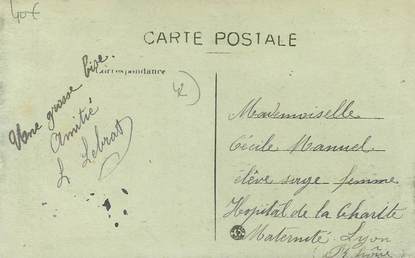 40€
CARTE POSTALE
Correspondance
Une grosse bise.
Amitié
L Lebrat
Mademoiselle
Cécile Manuel
élève sage femme
Hopital de la Charité
Maternité Lyon
(Rhône)